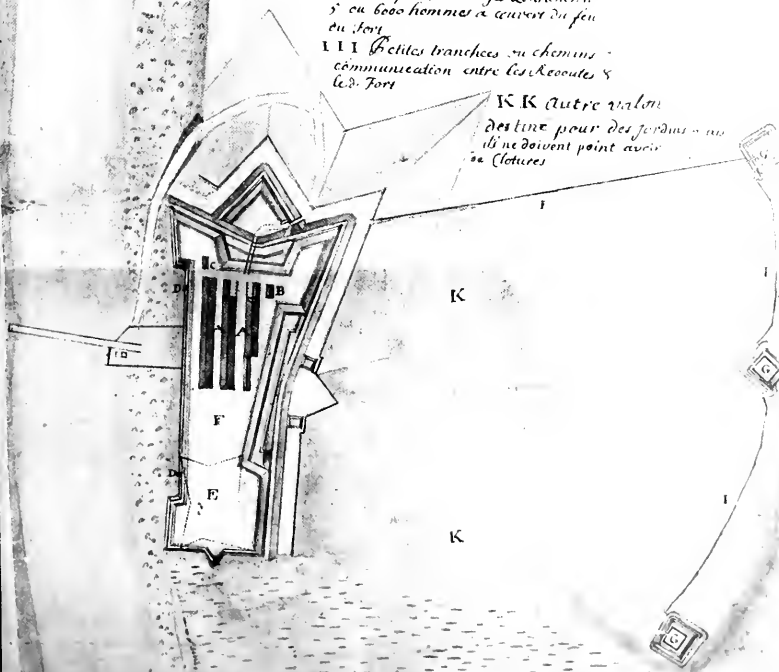 5 ou 6000 hommes a couvert du feu
du fort
I I I Petites tranchées ou chemins
communication entre les Redoutes &
led. Fort
K K autre valon
destiné pour des Jardins
ils ne doivent point avoir
de Clotures
G
I
I
C
D
B
K
G
F
D
E
I
K
G